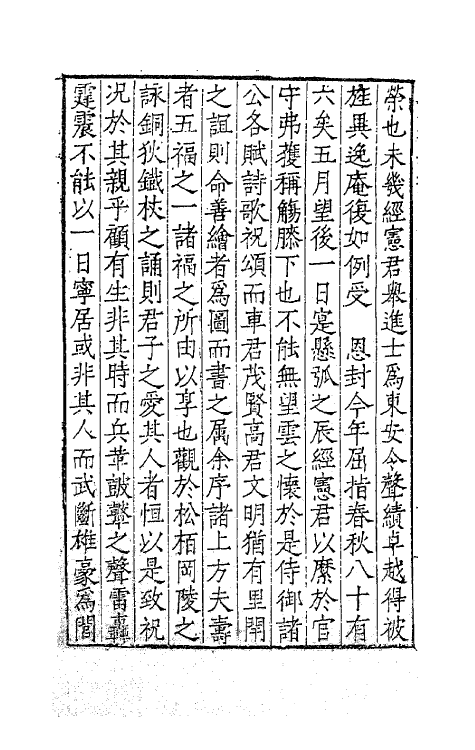 榮也未幾經憲君舉進士爲東安令聲績卓越得被
旌異逸庵復如例受　恩封今年屈指春秋八十有
六矣五月望後一日寔懸弧之辰經憲君以縻於官
守弗獲稱觴膝下也不能無望雲之懷於是侍御諸
公各賦詩歌祝頌而車君茂賢高君文明猶有里閈
之誼則命善繪者爲圖而書之属余序諸上方夫壽
者五福之一諸福之所由以享也觀於松栢岡陵之
詠銅狄鐵杖之誦則君子之愛其人者恒以是致祝
况於其親乎顧有生非其時而兵革鼓鼙之聲雷轟
霆震不能以一日寧居或非其人而武斷雄豪爲閭